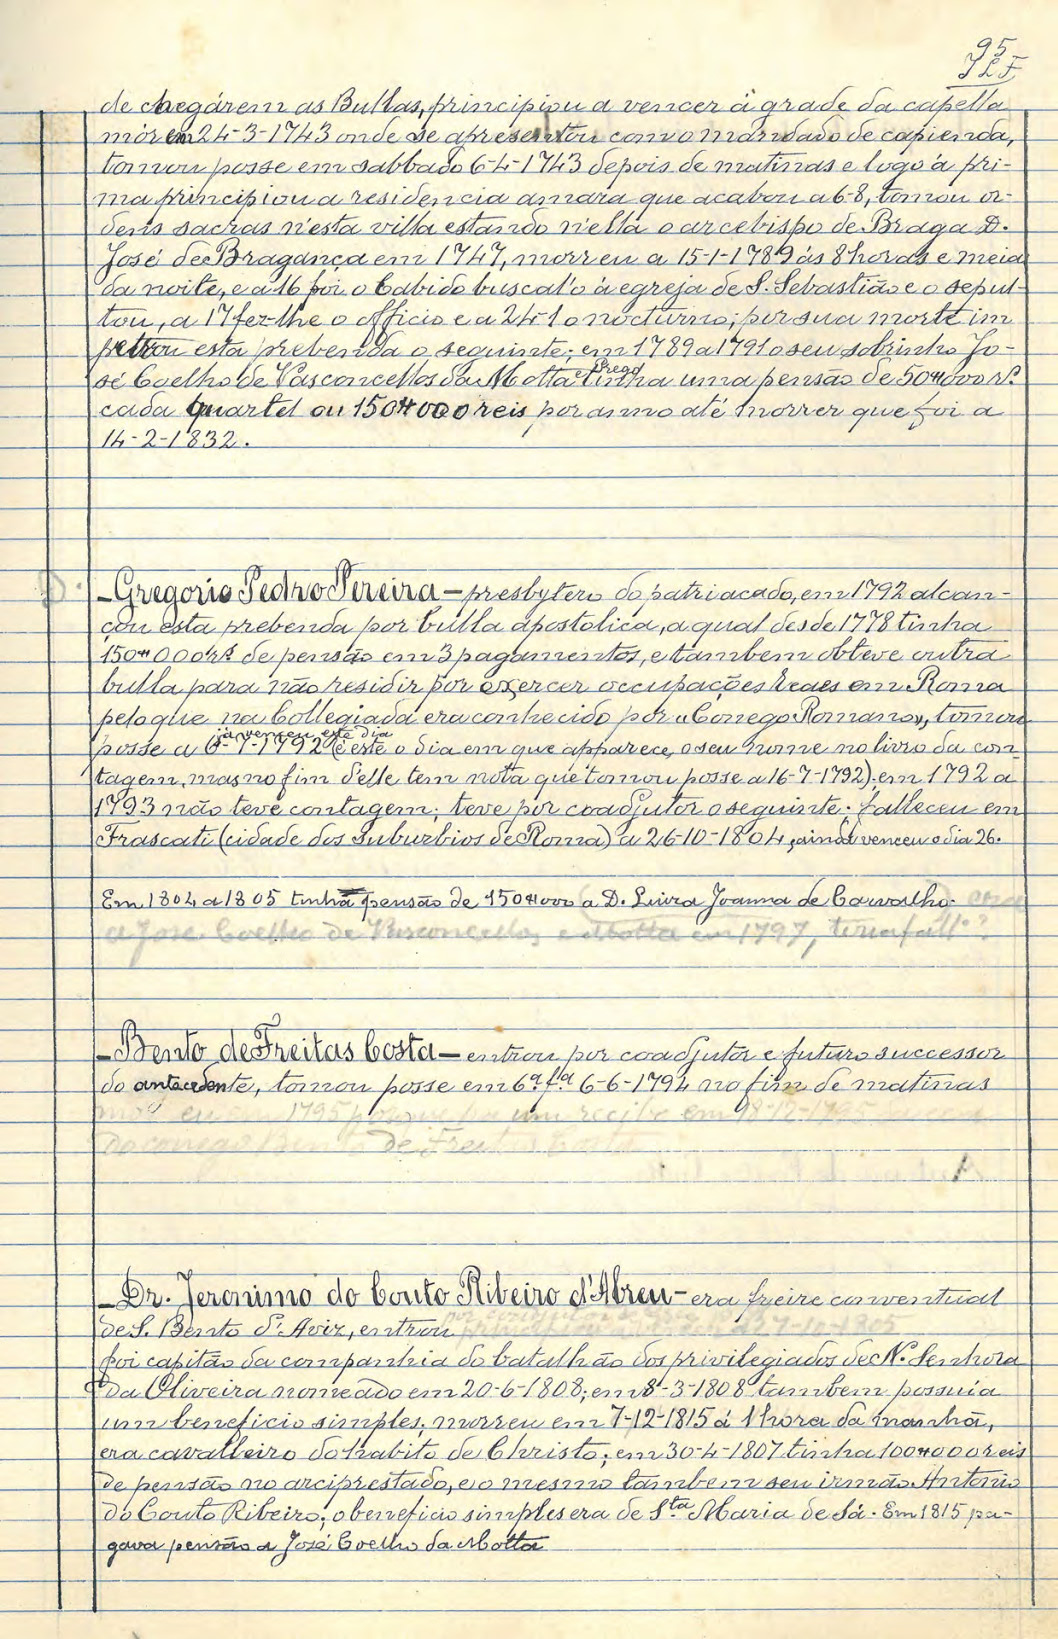 95
JLF
de chegárem as Bullas, principiou a vencer á grade da capella
mór em 24-3-1743 onde se apresentou com o mandado de capienda,
tomou posse em sabbado 6-4-1743 depois de matinas e logo á pri-
ma principiou a residencia amara que acabou a 6-8, tomou or-
dens sacras n'esta villa estando n'ella o arcebispo de Braga D.
José de Bragança em 1747, morreu a 15-1-1789 ás 8 horas e meia
da noite, e a 16 foi o Cabido buscal'o á egreja de S. Sebastião e o sepul-
tou, a 17 fez-lhe o officio e a 24-1 o nocturno; por sua morte im
petrou esta prebenda o seguinte; em 1789 a 1791 o seu sobrinho Jo-
sé Coelho de Vasconcellos da Motta e Prego tinha uma pensão de 50#000 rs.
cada quartel ou 150#000 reis por anno até morrer que foi a
14-2-1832.
– Gregorio Pedro Pereira – presbytero do patriacado, em 1792 alcan-
çou esta prebenda por bulla apostolica, a qual desde 1778 tinha
150#000 rs de pensão em 3 pagamentos, e tambem obteve outra
bulla para não residir por exercer occupações reaes em Roma
pelo que na Collegiada era conhecido por «Conego Romano», tomou
já venceu este dia
posse a 6-7-1792 (é este o dia em que apparece o seu nome no livro da con
tagem, mas no fim d'elle tem nota que tomou posse a 16-7-1792); em 1792 a
1793 não teve contagem; teve por coadjutor o seguinte; falleceu em
Frascati (cidade dos suburbios de Roma) a 26-10-1804, ainda venceu o dia 26.
Em 1804 a 1805 tinha pensão de 150#000 a D. Luiza Joanna de Carvalho.
a José Coelho de Vasconcellos e Motta em 1797, teria fall.º?
– Bento de Freitas Costa – entrou por coadjutor e futuro successor
do antecedente, tomou posse em 6ª fª 6-6-1794 no fim de matinas
em 1795 porque ha um recibo em 18-12-1795
do conego Bento de Freitas Costa
– Dr. Jeronimo do Couto Ribeiro d'Abreu – era freire conventual
de S. Bento d'Aviz, entrou
foi capitão da companhia do batalhão dos privilegiados de N. Senhora
da Oliveira nomeado em 20-6-1808; em 8-3-1808 tambem possuia
um beneficio simples; morreu em 7-12-1815 á 1 hora da manhã,
era cavalleiro do habito de Christo; em 30-4-1807 tinha 100#000 reis
de pensão no arciprestado, e o mesmo tambem seu irmão Antonio
do Couto Ribeiro; o beneficio simples era de Sta Maria de Sá. Em 1815 pa-
gava pensão a José Coelho da Motta